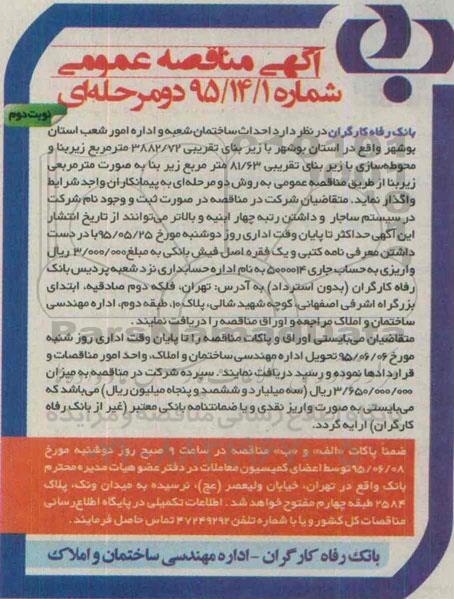 آگهی مناقصه عمومی
شماره ۹۵/۱۴/۱ دومرحله‌ای
نوبت دوم
بانک رفاه کارگران در نظر دارد احداث ساختمان شعبه و اداره امور شعب استان
بوشهر واقع در استان بوشهر با زیر بنای تقریبی ۳۸۸۲/۷۲ مترمربع زیربنا و
محوطه‌سازی با زیر بنای تقریبی ۸۱/۶۳ متر مربع زیر بنا به صورت مترمربعی
زیربنا از طریق مناقصه عمومی به روش دو مرحله‌ای به پیمانکاران واجد شرایط
واگذار نماید. متقاضیان شرکت در مناقصه در صورت ثبت و وجود نام شرکت
در سیستم ساجار و داشتن رتبه چهار ابنیه و بالاتر می‌توانند از تاریخ انتشار
این آگهی حداکثر تا پایان وقت اداری روز دوشنبه مورخ ۹۵/۰۵/۲۵ با در دست
داشتن معرفی نامه کتبی و یک فقره اصل فیش بانکی به مبلغ ۳/۰۰۰/۰۰۰ ریال
واریزی به حساب جاری ۵۰۰۰۰۱۴ به نام اداره حسابداری نزد شعبه پردیس بانک
رفاه کارگران (بدون استرداد) به آدرس: تهران، فلکه دوم صادقیه، ابتدای
بزرگراه اشرفی اصفهانی، کوچه شهید شالی، پلاک ۱۰، طبقه دوم، اداره مهندسی
ساختمان و املاک مراجعه و اوراق مناقصه را دریافت نمایند.
متقاضیان می‌بایستی اوراق و پاکات مناقصه را تا پایان وقت اداری روز شنبه
مورخ ۹۵/۰۶/۰۶ تحویل اداره مهندسی ساختمان و املاک، واحد امور مناقصات و
قراردادها نموده و رسید دریافت نمایند. سپرده شرکت در مناقصه به میزان
۳/۶۵۰/۰۰۰/۰۰۰ ریال (سه میلیارد و ششصد و پنجاه میلیون ریال) می‌باشد که
می‌بایستی به صورت واریز نقدی و یا ضمانتنامه بانکی معتبر (غیر از بانک رفاه
کارگران) ارایه گردد.
ضمنا پاکات «الف» و «ب» مناقصه در ساعت ۹ صبح روز دوشنبه مورخ
۹۵/۰۶/۰۸ توسط اعضای کمیسیون معاملات در دفتر عضو هیات مدیره محترم
بانک واقع در تهران، خیابان ولیعصر (عج)، نرسیده به میدان ونک، پلاک
۲۵۸۴ طبقه چهارم مفتوح خواهد شد. اطلاعات تکمیلی در پایگاه اطلاع‌رسانی
مناقصات کل کشور و یا با شماره تلفن ۴۷۲۴۹۲۹۲ تماس حاصل فرمایند.
بانک رفاه کارگران - اداره مهندسی ساختمان و املاک